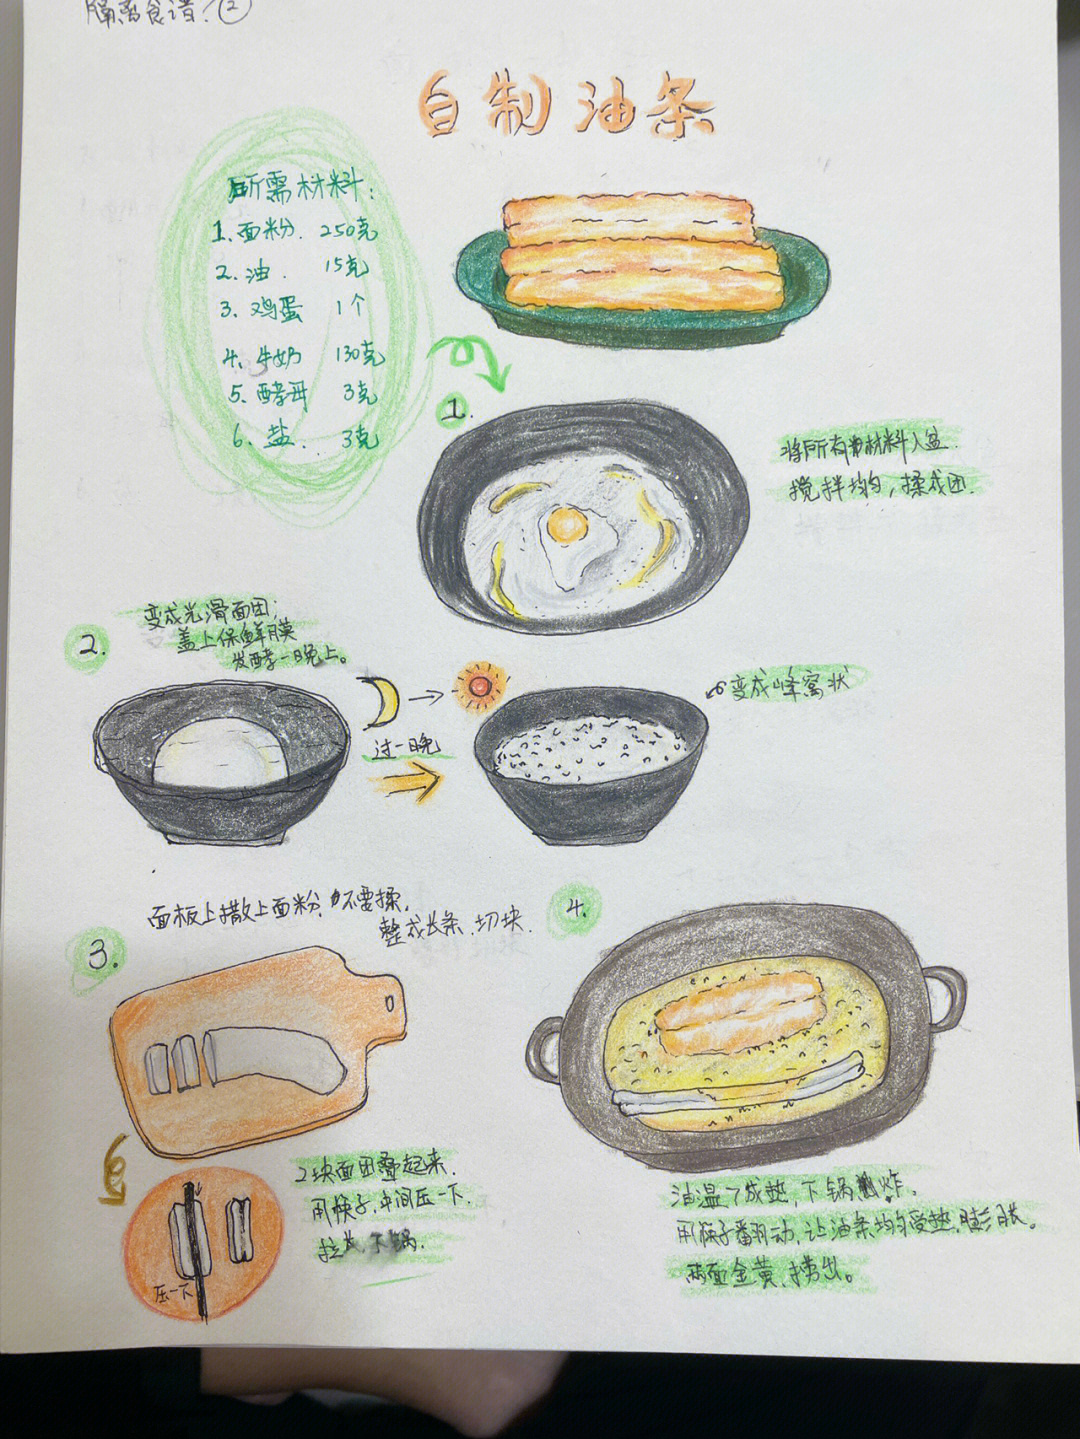 隔离食谱：②
自制油条
所需材料：
1. 面粉. 250克
2. 油. 15克
3. 鸡蛋 1个
4. 牛奶 130克
5. 酵母 3克
6. 盐. 3克
1.
将所有材料入盆.
搅拌均匀，揉成团.
2.
变成光滑面团，
盖上保鲜膜
发酵一晚上。
过一晚
变成峰窝状
3.
面板上撒上面粉，不要揉，
整成长条.切块.
2块面团叠起来.
用筷子,中间压一下.
拉长下锅.
压一下
4.
油温7成热,下锅炸.
用筷子翻动,让油条均匀受热,膨胀。
两面金黄,捞出。